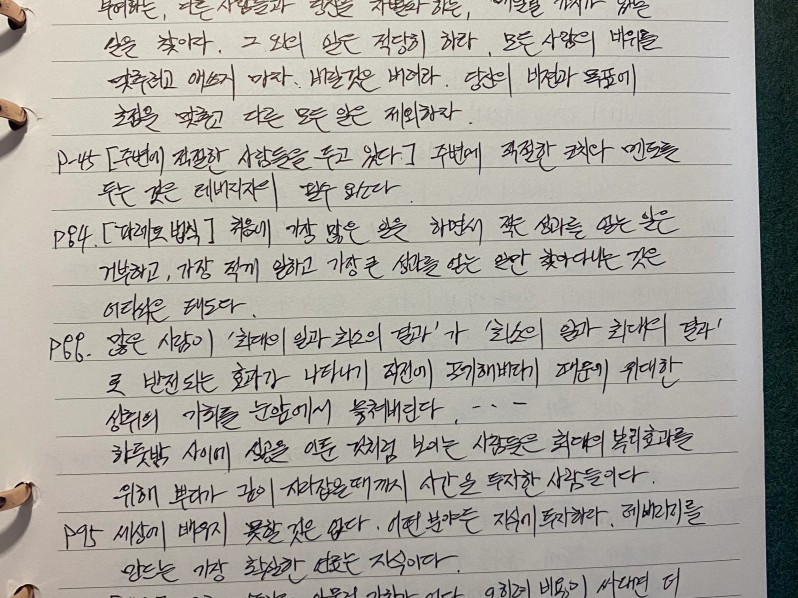 부여하는, 다른 사람들과 당신을 차별화 하는, 매달릴 가치가 있는
일을 찾아라. 그 외의 일은 적당히 하라. 모든 사람의 비위를
맞추려고 애쓰지 마라. 버릴것은 버려라. 당신의 비전과 목표에
초점을 맞추고 다른 모든 일은 제외하자.
P-45 [주변에 적절한 사람들을 두고 있다.] 주변에 적절한 코치나 멘토를
두는 것은 레버리지의 필수 요소다.
P84. [파레토 법칙] 처음에 가장 많은 일을 하면서 적은 성과를 얻는 일은
거부하고, 가장 적게 일하고 가장 큰 성과를 얻는 일만 찾아다니는 것은
어리석은 태도다.
P88. 많은 사람이 '최대의 일과 최소의 결과'가 '최소의 일과 최대의 결과'
로 반전되는 효과가 나타나기 직전에 포기해버리기 때문에 위대한
성취의 기회를 눈앞에서 놓쳐버린다. - - -
하룻밤 사이에 성공을 이룬 것처럼 보이는 사람들은 최대의 복리효과를
위해 뿌리가 깊이 자리잡을때까지 시간을 투자한 사람들이다.
P95 세상에 배우지 못할 것은 없다. 어떤 분야든 지식에 투자하라. 레버리지를
만드는 가장 확실한 선로는 지식이다.
오히려 비용이 싸다면 더